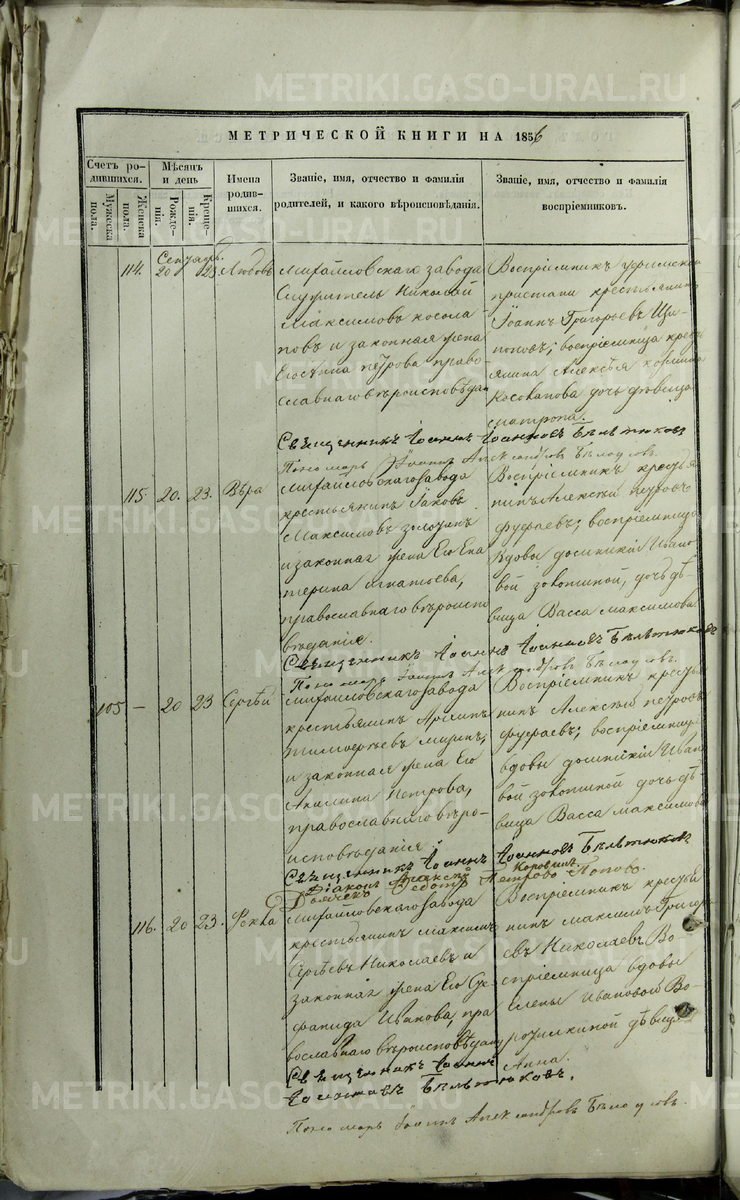 METRIKI.GASO-URAL.RU
МЕТРИЧЕСКОЙ КНИГИ НА 1856
Счетъ родившихся.
Мужеска пола.
Женска пола.
Мѣсяцъ и день
Рожденія.
Крещенія.
Имена родившихся.
Званіе, имя, отчество и фамилія родителей, и какого вѣроисповѣданія.
Званіе, имя, отчество и фамилія воспріемниковъ.
Сентябр.
114. 20 23 Любовь
Михайловскаго завода
Служитель Николай
Максимовъ косола
повъ и законная жена
Его петрова право
славнаго вѣроисповѣдан
Воспріемникъ уфимской
пристани крестьянинъ
Іоаннъ Григорьевъ Щи
повъ; воспріемница крест
янина Алексѣя
Косолапова дочь дѣвица
матрона.
Священникъ Іоаннъ Іоанновъ Бѣлетюковъ
Пономарь Іоаннъ Александровъ Бѣлоусовъ.
115. 20. 23. Вѣра
Михайловскаго завода
крестьянинъ Іаковъ
Максимовъ
и законная жена Его Ека
терина игнатьева,
православнаго вѣроиспо
вѣданія.
Воспріемникъ крестья
нинъ Алексѣй петровъ
фуфаевъ; воспріемница
вдовы Ивано
вой дочь дѣ
вица Васса максимова
Священникъ Іоаннъ Іоанновъ Бѣлетюковъ
Пономарь Іоаннъ Александровъ Бѣлоусовъ.
105 — 20 23 Сергѣй
Михайловскаго завода
крестьянинъ Архипъ
Тимофеевъ
и законная жена Его
Акилина Петрова,
православнаго вѣро
исповѣданія.
Воспріемникъ кресть
нинъ Алексѣй петровъ
фуфаевъ; воспріемница
вдовы Иван
вой дочь дѣ
вица Васса максимова
Священникъ Іоаннъ Іоанновъ Бѣлетюковъ
Діаконъ Коровинъ.
Дьячекъ Федотъ Петровъ Поповъ.
116. 20 23. Фекла
Михайловскаго завода
крестьянинъ Максимъ
Сергѣевъ Николаевъ и
законная жена Его Су
фанида Иванова, пра
вославнаго вѣроисповѣдан
Воспріемникъ крестья
нинъ максимъ Григорь
евъ Николаевъ Во
спріемница вдовы
Елены Ивановой Во
дѣвица
Анна.
Священникъ Іоаннъ
Іоанновъ Бѣлетюковъ.
Пономарь Іоаннъ Александровъ Бѣлоусовъ.